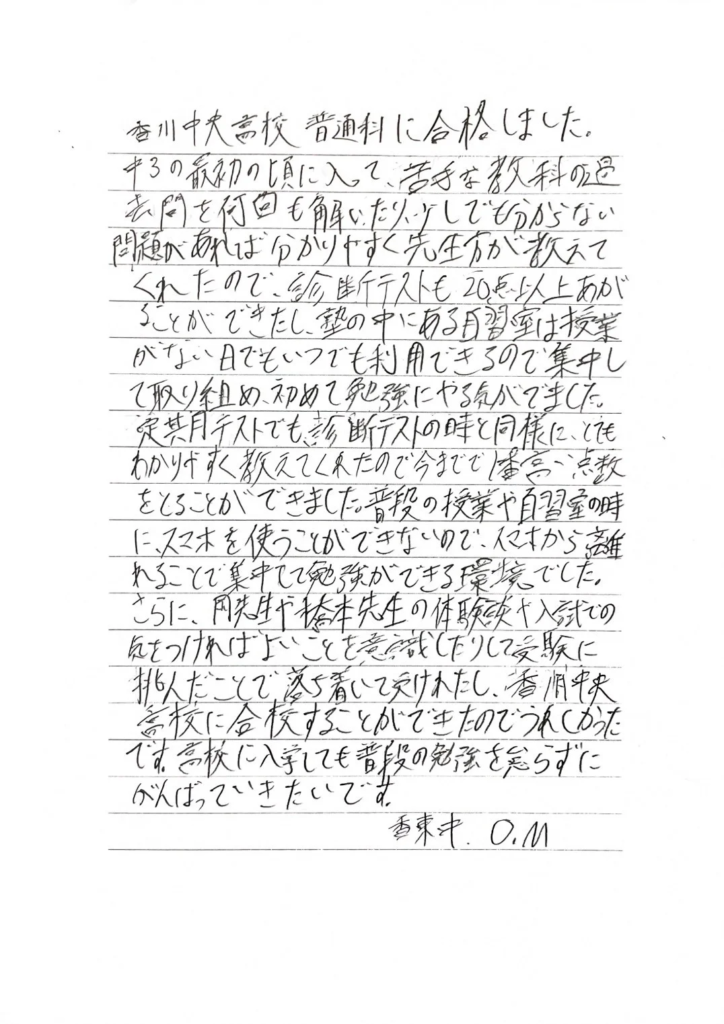 香川中央高校 普通科に合格しました。
中3の最初の頃に入って、苦手な教科の過
去問を何回も解いたり、少しでも分からない
問題があれば分かりやすく先生方が教えて
くれたので、診断テストも20点以上あが
ることができたし、塾の中にある自習室は授業
がない日でもいつでも利用できるので集中し
て取り組め、初めて勉強にやる気がでました。
定期テストでも、診断テストの時と同様に、とても
わかりやすく教えてくれたので今までで1番高い点数
をとることができました。普段の授業や自習室の時
に、スマホを使うことができないので、スマホから離
れることで集中して勉強ができる環境でした。
さらに、岡先生や橋本先生の体験談や入試での
気をつければよいことを意識したりして受験に
挑んだことで落ち着いて受けれたし、香川中央
高校に合校することができたのでうれしかった
です。高校に入学しても普段の勉強を怠らずに
がんばっていきたいです。
香東中. O.M